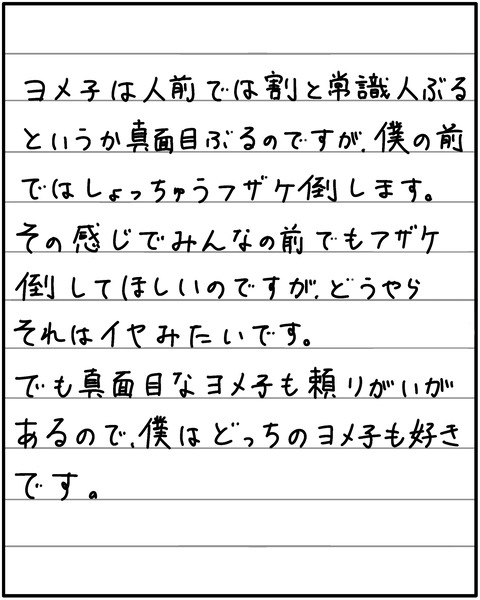 ヨメ子は人前では割と常識人ぶる
というか真面目ぶるのですが、僕の前
ではしょっちゅうフザケ倒します。
その感じでみんなの前でもフザケ
倒してほしいのですが、どうやら
それはイヤみたいです。
でも真面目なヨメ子も頼りがいが
あるので、僕はどっちのヨメ子も好き
です。